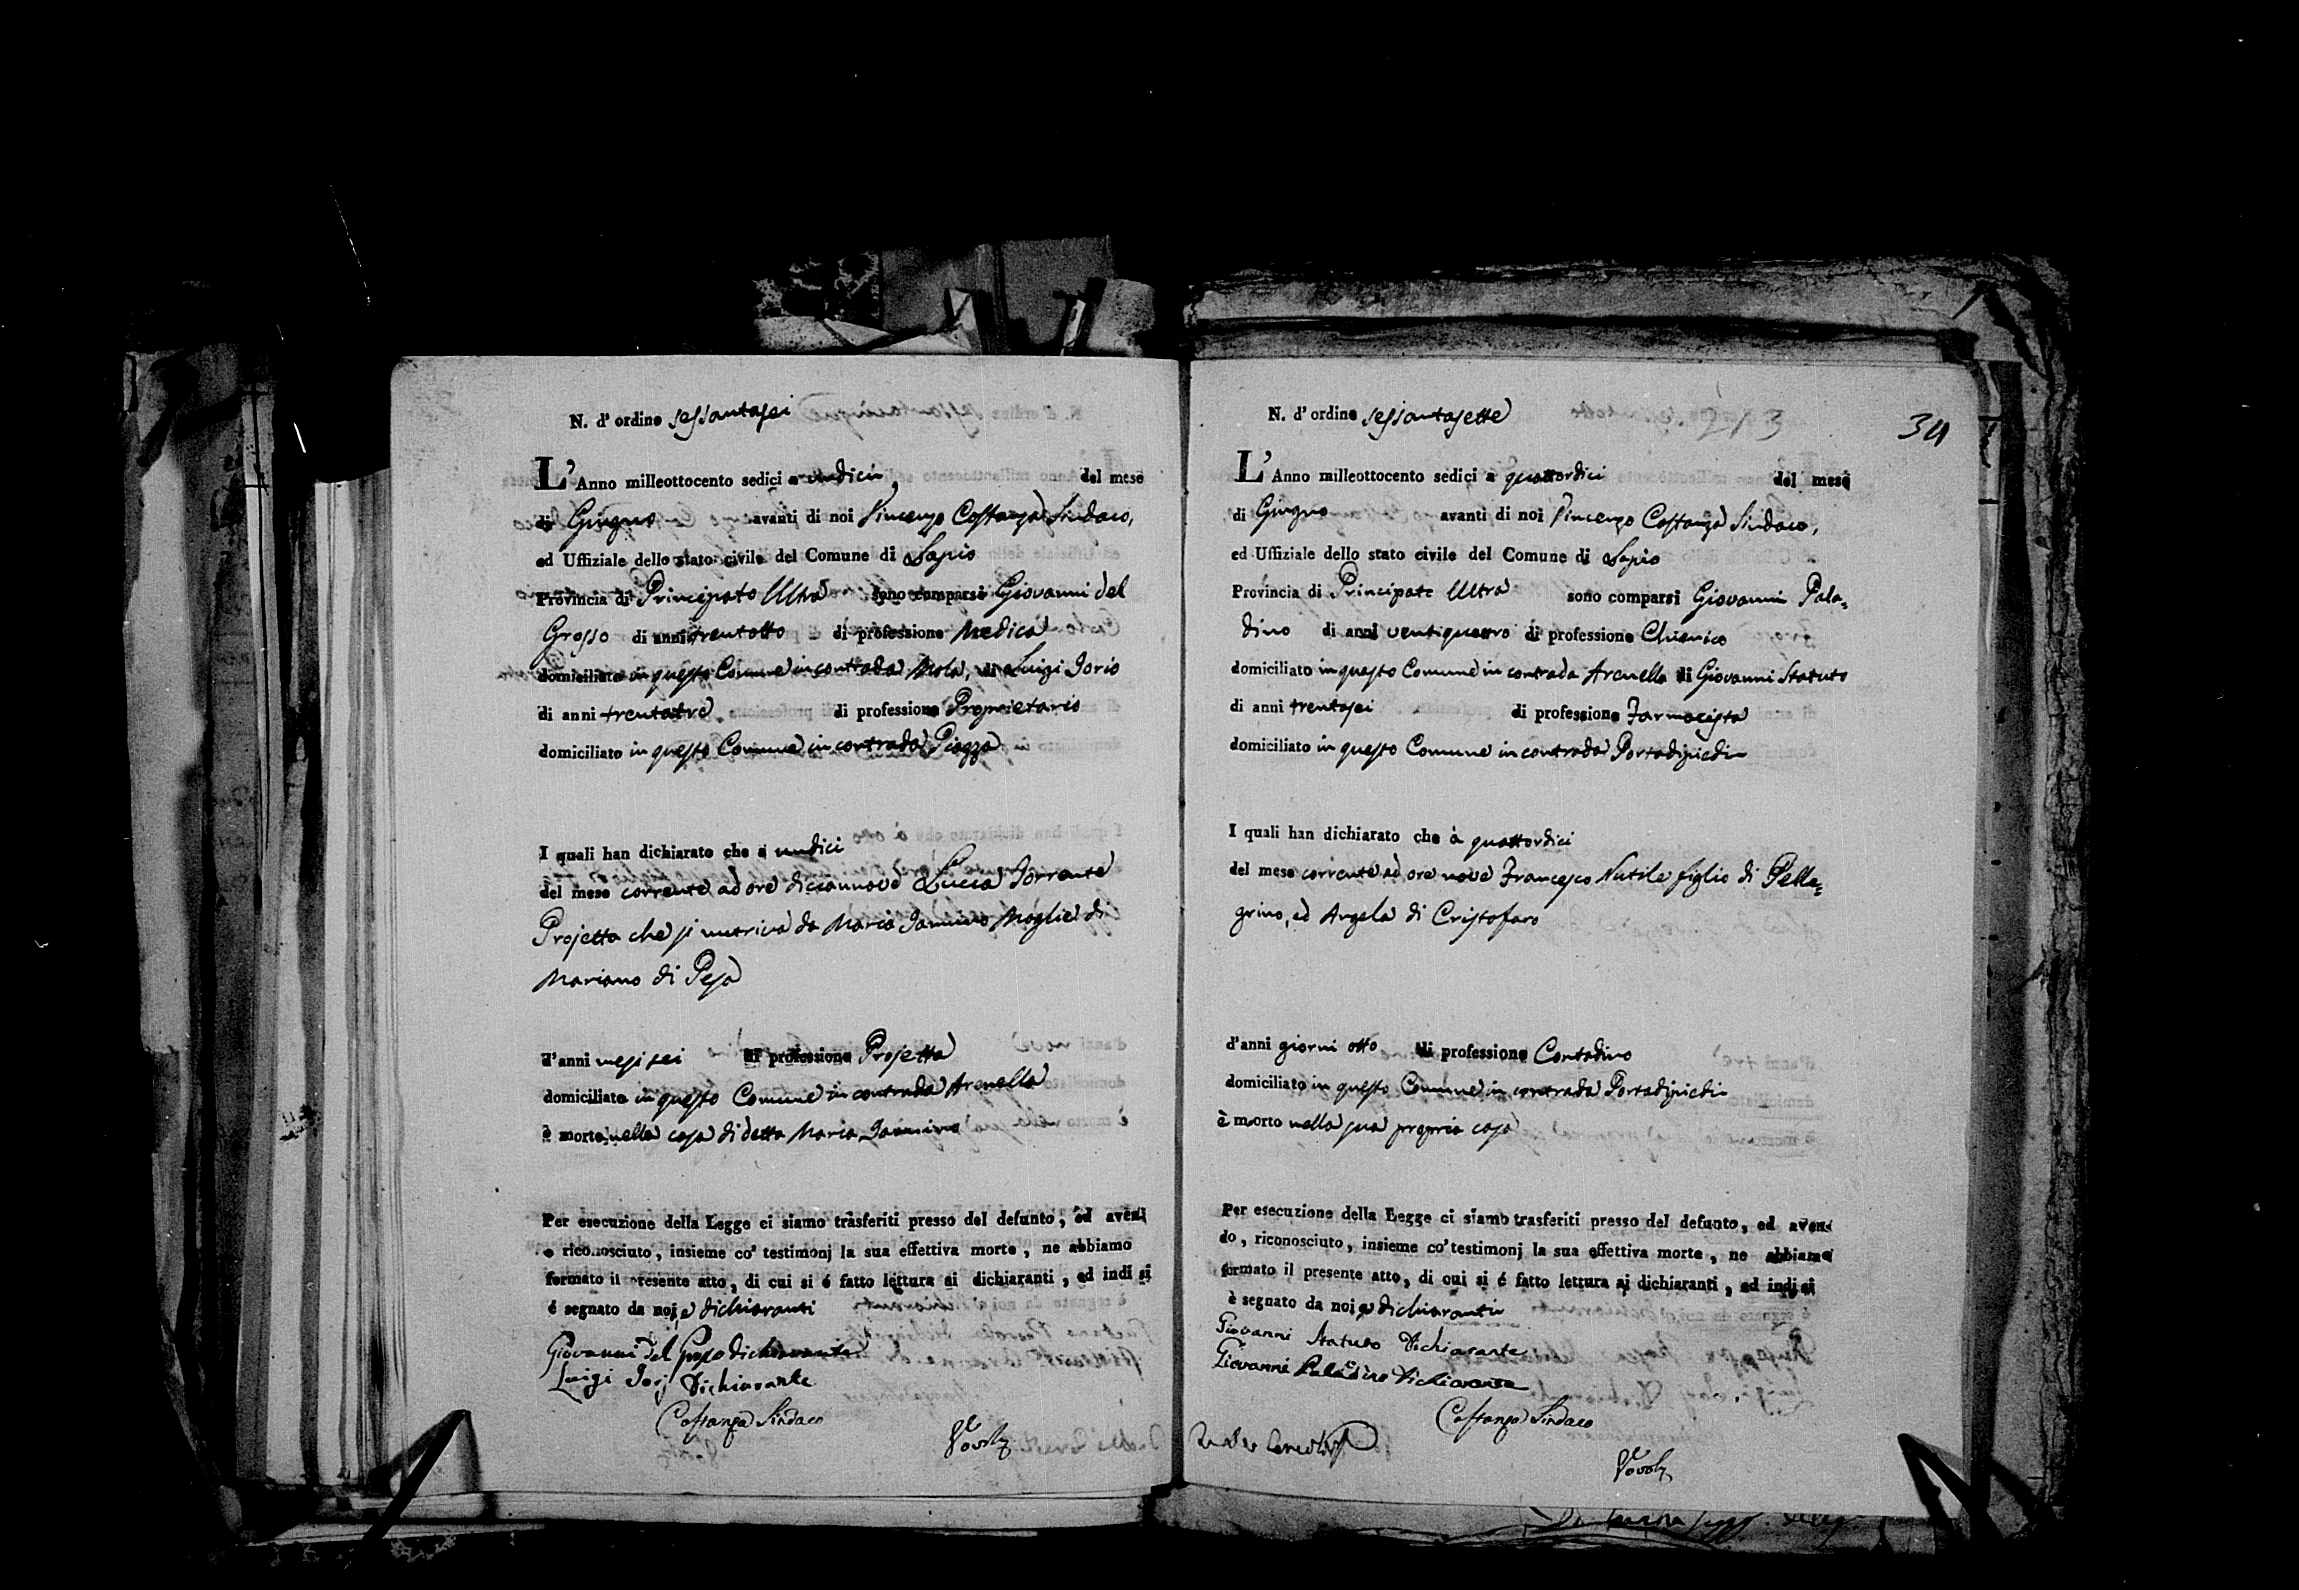 N. d' ordine sessantasei
L' Anno milleottocento sedici a undici, del mese
di Giugno avanti di noi Vincenzo Costanza Sindaco,
ed Uffiziale dello stato civile del Comune di Lapio
Provincia di Principato Ultra sono comparsi Giovanni del
Grosso di anni trentotto di professione Medico
domiciliato in questo Comune in contrada Mola, di Luigi Iorio
di anni trentatre di professione Proprietario
domiciliato in questo Comune in contrada Piazza
I quali han dichiarato che a undici
del mese corrente ad ore diciannove Lucia Torrente
Projetta che si nutriva da Maria Iannino Moglie di
Mariano di Pesa
d'anni mesi sei di professione Projetta
domiciliato in questo Comune in contrada Arenella
è morto nella casa di detta Maria Iannino
Per esecuzione della Legge ci siamo trasferiti presso del defunto, ed aven
o riconosciuto, insieme co' testimonj la sua effettiva morte, ne abbiamo
formato il presente atto, di cui si é fatto lettura ai dichiaranti, ed indi si
é segnato da noi, e dichiaranti
Giovanni del Grosso dichiarante
Luigi Iorj Dichiarante
Costanza Sindaco
N. d' ordine sessantasette
213
34
L' Anno milleottocento sedici a quattordici del mese
di Giugno avanti di noi Vincenzo Costanza Sindaco,
ed Uffiziale dello stato civile del Comune di Lapio
Provincia di Principato Ultra sono comparsi Giovanni Pala=
dino di anni ventiquattro di professione Chierico
domiciliato in questo Comune in contrada Arenella di Giovanni Statuto
di anni trentasei di professione Farmacista
domiciliato in questo Comune in contrada Portadipiedi
I quali han dichiarato che à quattordici
del mese corrente ad ore nove Francesco Nutile figlio di Pelle=
grino, ed Angela di Cristofaro
d'anni giorni otto di professione Contadino
domiciliato in questo Comune in contrada Portadipiedi
è morto nella sua propria casa
Per esecuzione della Legge ci siamo trasferiti presso del defunto, ed aven
do, riconosciuto, insieme co' testimonj la sua effettiva morte, ne abbiamo
formato il presente atto, di cui si é fatto lettura ai dichiaranti, ed indi si
è segnato da noi e dichiaranti
Giovanni Statuto Dichiarante
Giovanni Paladino Dichiarante
Costanza Sindaco